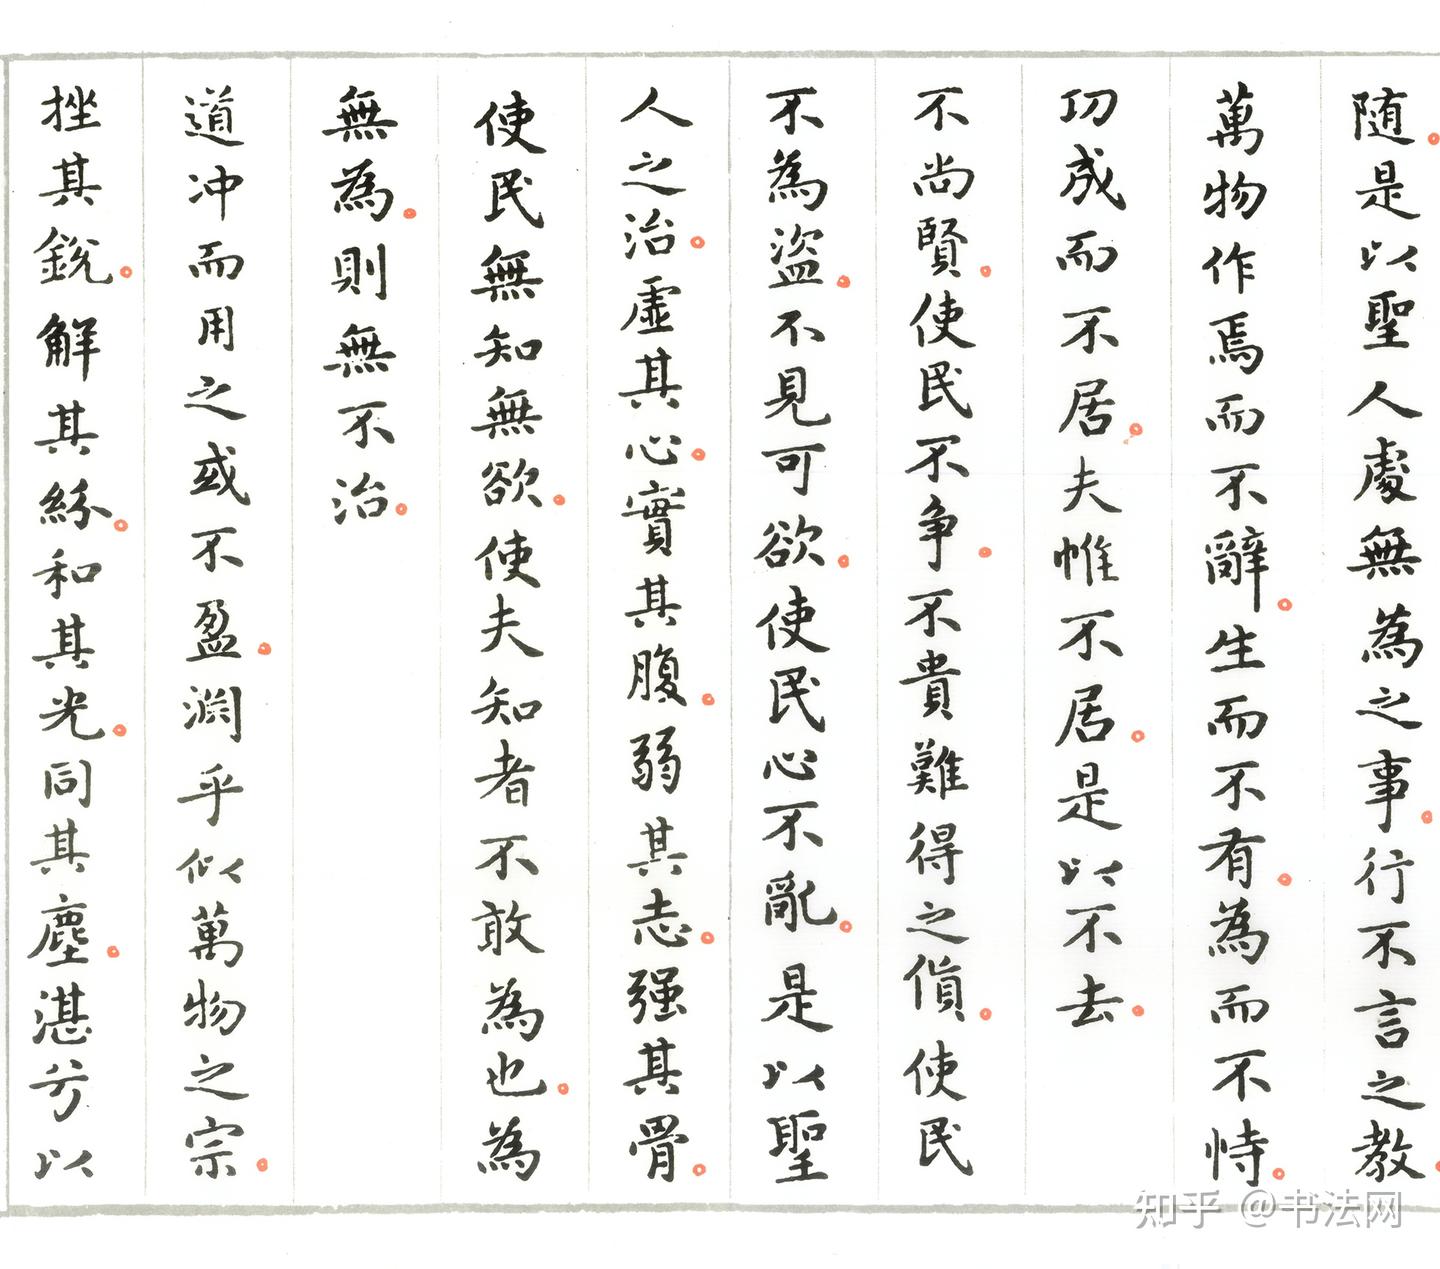 随。是以聖人處無為之事。行不言之教。
萬物作焉而不辭。生而不有。為而不恃。
功成而不居。夫惟不居。是以不去。
不尚賢。使民不争。不貴難得之貨。使民
不為盗。不見可欲。使民心不亂。是以聖
人之治。虛其心。實其腹。弱其志。强其骨。
使民無知無欲。使夫知者不敢為也。為
無為。則無不治。
道冲而用之或不盈。淵乎似萬物之宗。
挫其銳。解其紛。和其光。同其塵。湛兮以
知乎 @书法网